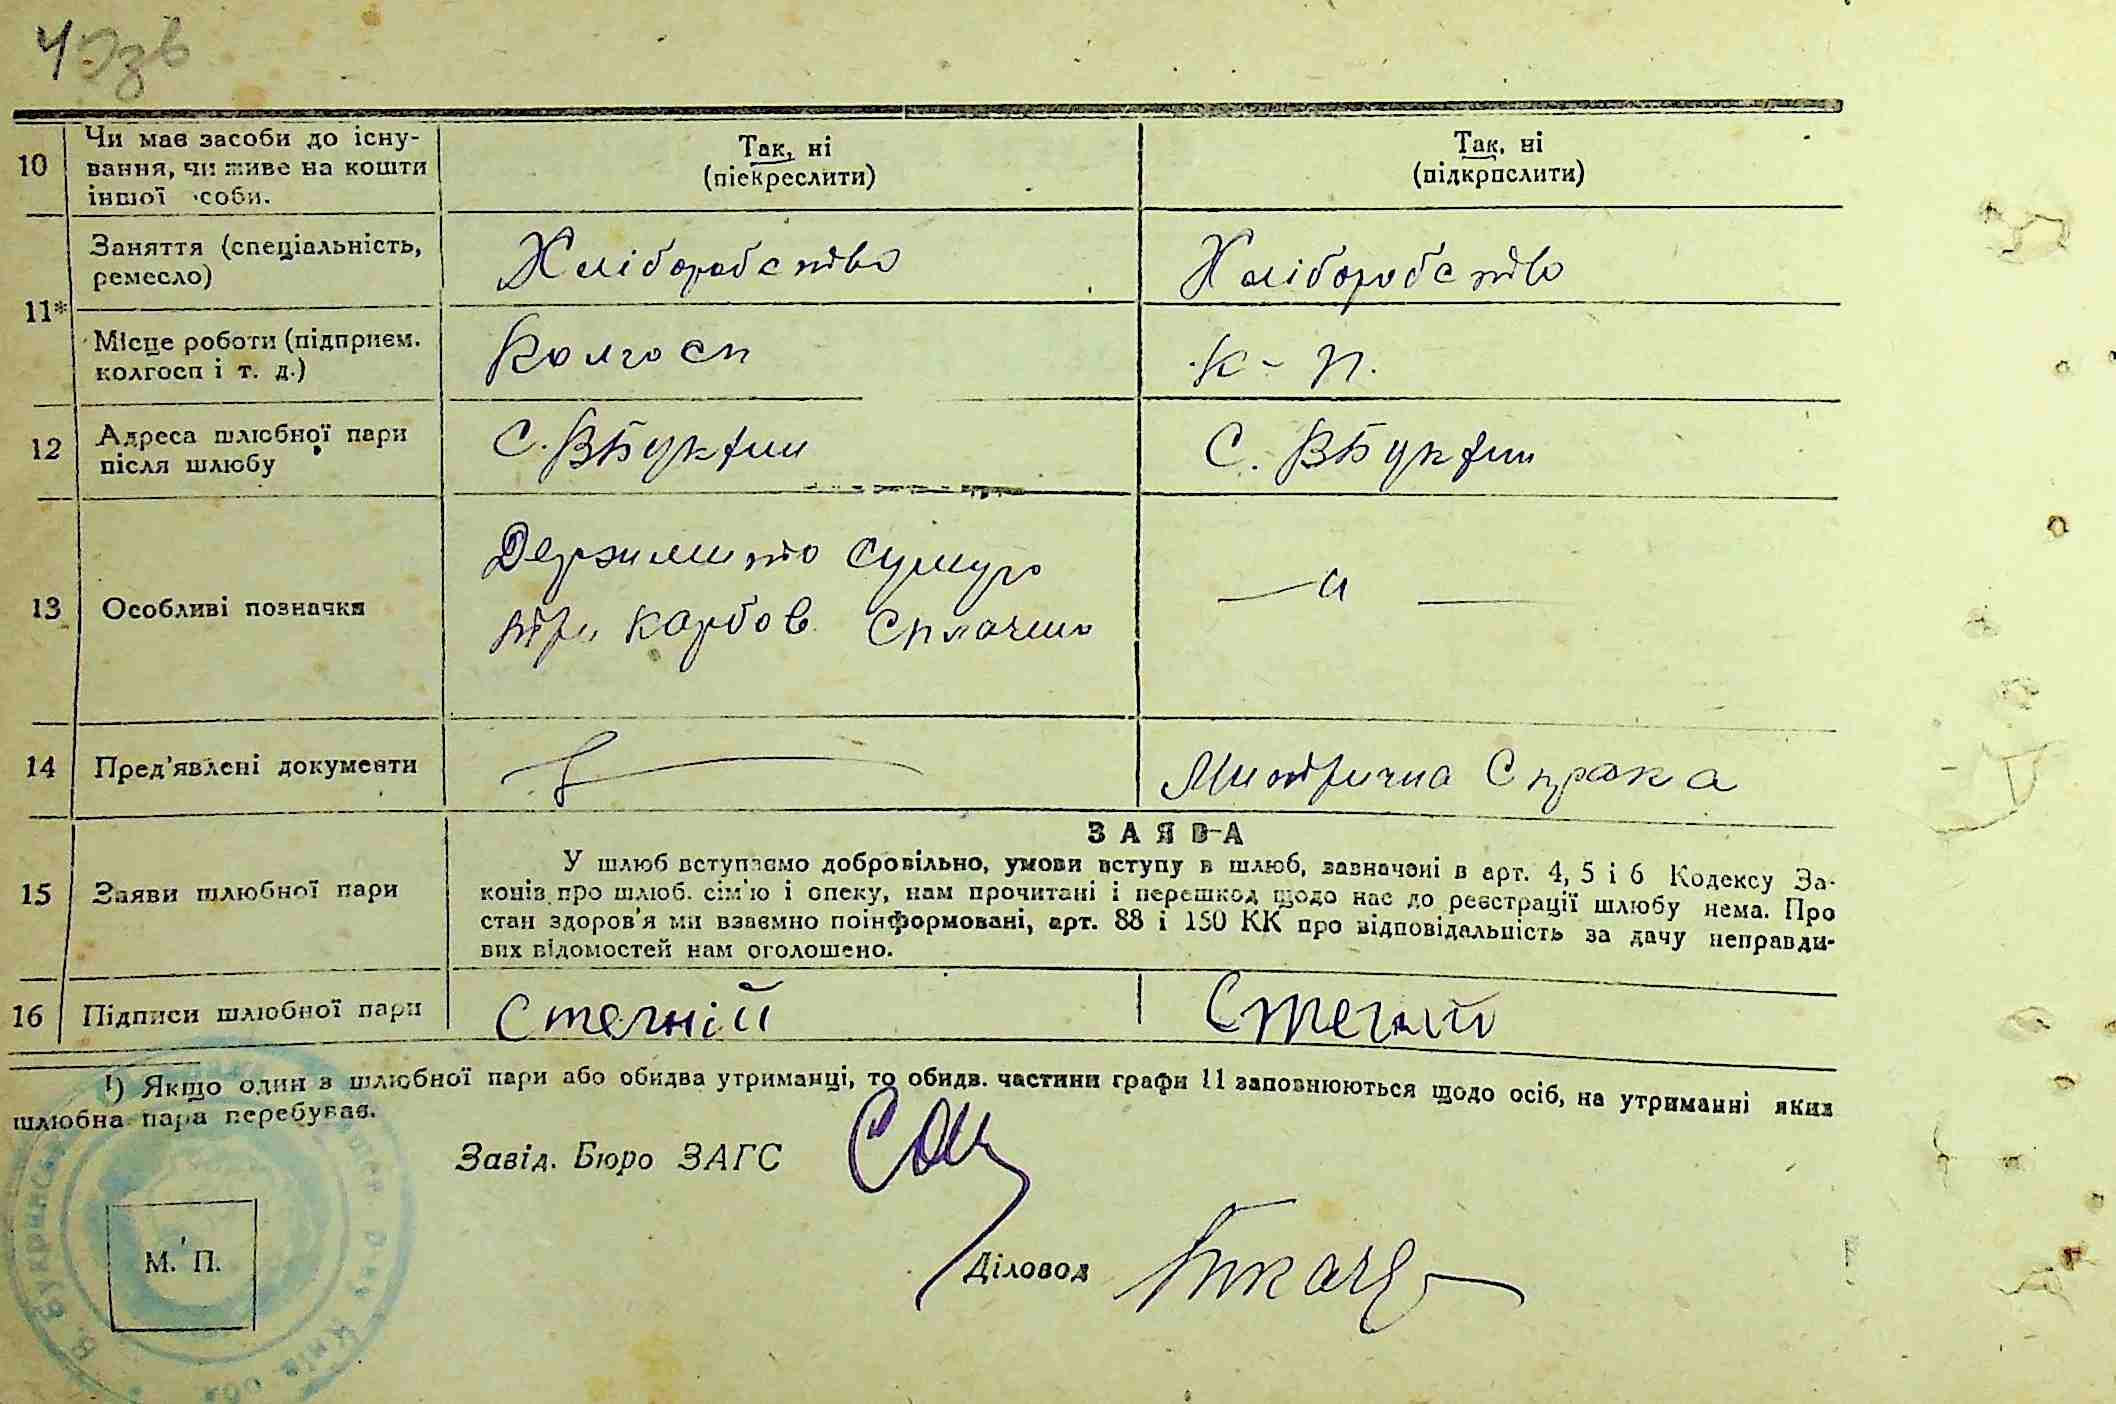 40зв
10 Чи має засоби до існу- Так, ні Так, ні
вання, чи живе на кошти (піекреслити) (підкрпслити)
іншої особи.
11* Заняття (спеціальність, Хліборобство Хліборобство
ремесло)
Місце роботи (підприєм. Колгосп к-п.
колгосп і т. д.)
12 Адреса шлюбної пари С. ВБукрин С. ВБукрин
після шлюбу
13 Особливі позначки
Держмито суму
три карбов. Сплачено
— " —
14 Пред'явлені документи Митрична Справка
ЗАЯВА
15 Заяви шлюбної пари
У шлюб вступаємо добровільно, умови вступу в шлюб, зазначені в арт. 4, 5 і 6 Кодексу За-
конів про шлюб. сім'ю і опеку, нам прочитані і перешкод щодо нас до реєстрації шлюбу нема. Про
стан здоров'я ми взаємно поінформовані, арт. 88 і 150 КК про відповідальність за дачу неправди-
вих відомостей нам оголошено.
16 Підписи шлюбної пари Стегній Стегній
¹) Якщо один з шлюбної пари або обидва утриманці, то обидв. частини графи 11 заповнюються щодо осіб, на утриманні яких
шлюбна пара перебуває.
Завід. Бюро ЗАГС
М. П.
Діловод Ткач